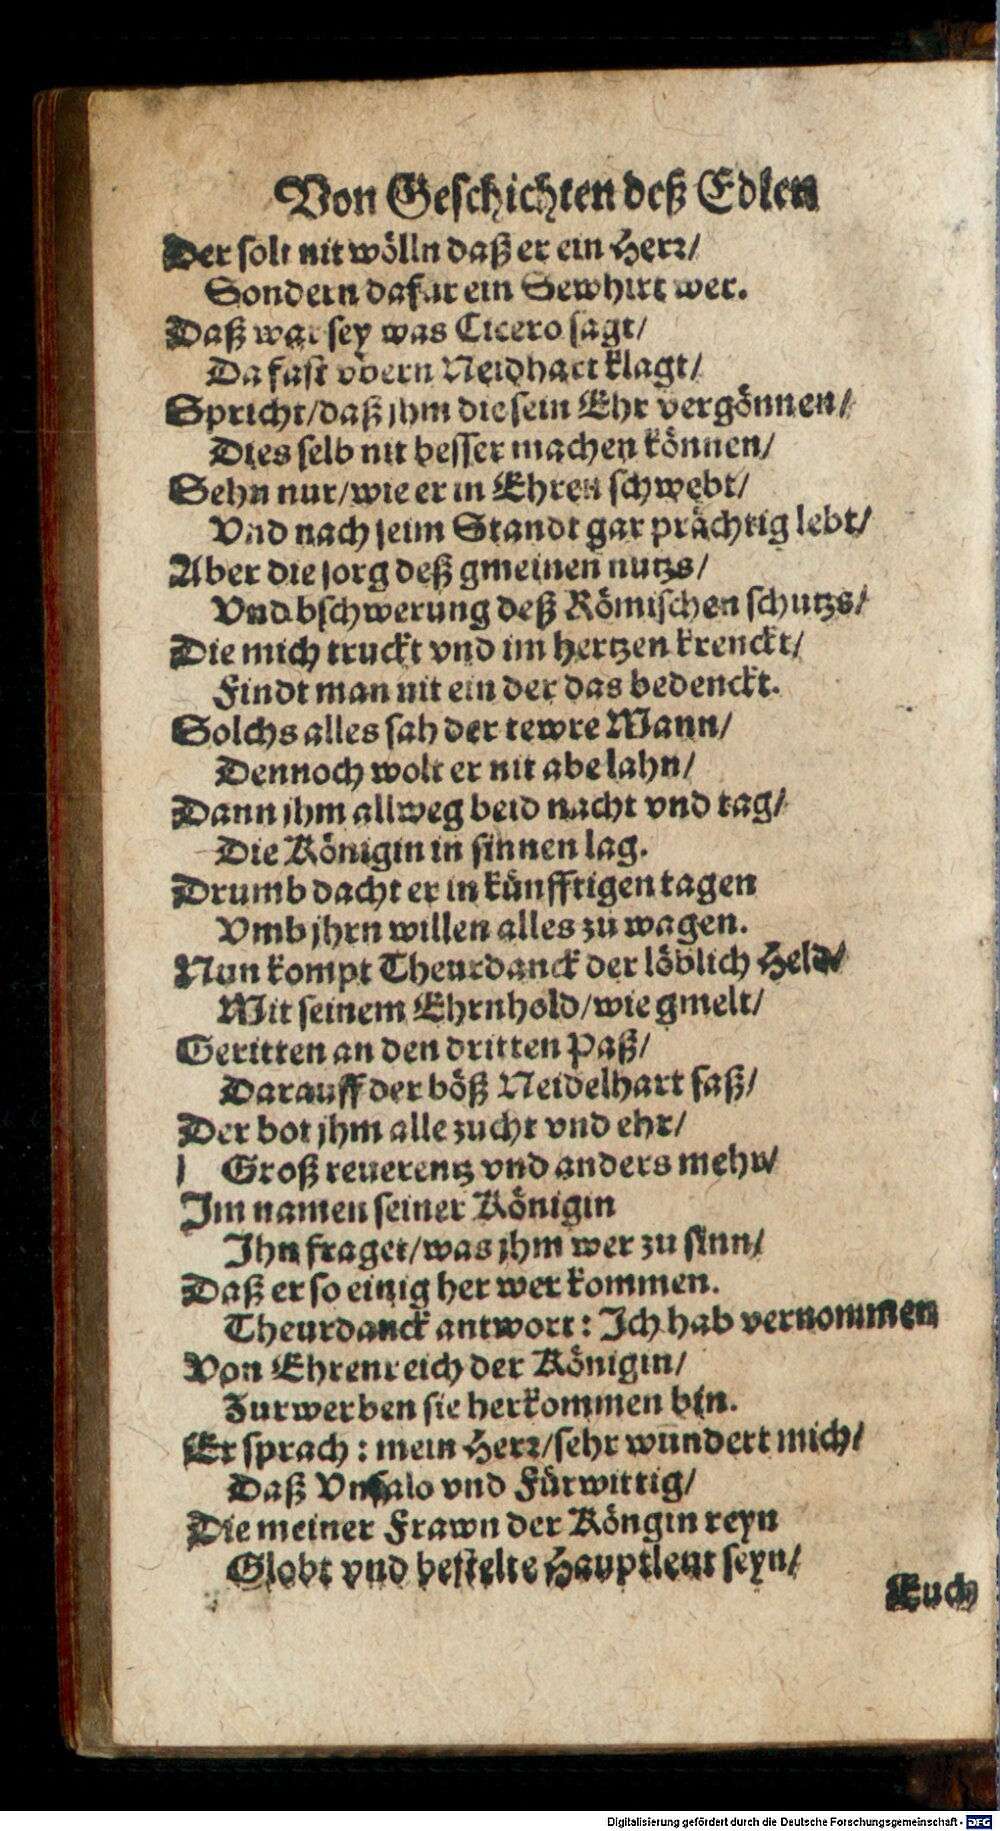 Von Geschichten deß Edlen
Der solt nit wölln daß er ein Herr/
Sondern dafür ein Sewhirt wer.
Daß war sey was Cicero sagt/
Da fast vbern Neidhart klagt/
Spricht/daß jhm die sein Ehr vergönnen/
Dies selb nit besser machen können/
Sehn nur/wie er in Ehren schwebt/
Vnd nach seim Standt gar prächtig lebt/
Aber die sorg deß gmeinen nutzs/
Vnd bschwerung deß Römischen schutzs/
Die mich truckt vnd im hertzen krenckt/
Findt man nit ein der das bedenckt.
Solchs alles sah der tewre Mann/
Dennoch wolt er nit abelahn/
Dann jhm allweg beid nacht vnd tag/
Die Königin in sinnen lag.
Drumb dacht er in künfftigen tagen
Vmb jhrn willen alles zu wagen.
Nun kompt Theurdanck der löblich Held/
Mit seinem Ehrnhold/wie gmelt/
Geritten an den dritten Paß/
Darauff der böß Neidelhart saß/
Der bot jhm alle zucht vnd ehr/
Groß reuerentz vnd anders mehr/
Im namen seiner Königin
Ihn fraget/was jhm wer zu sinn/
Daß er so einig her wer kommen.
Theurdanck antwort: Ich hab vernommen
Von Ehrenreich der Königin/
Zurwerben sie herkommen bin.
Er sprach: mein Herr/sehr wundert mich/
Daß Vnfalo vnd Fürwittig/
Die meiner Frawn der Köngin reyn
Globt vnd bestelte Hauptleut seyn/
Euch
Digitalisierung gefördert durch die Deutsche Forschungsgemeinschaft - DFG